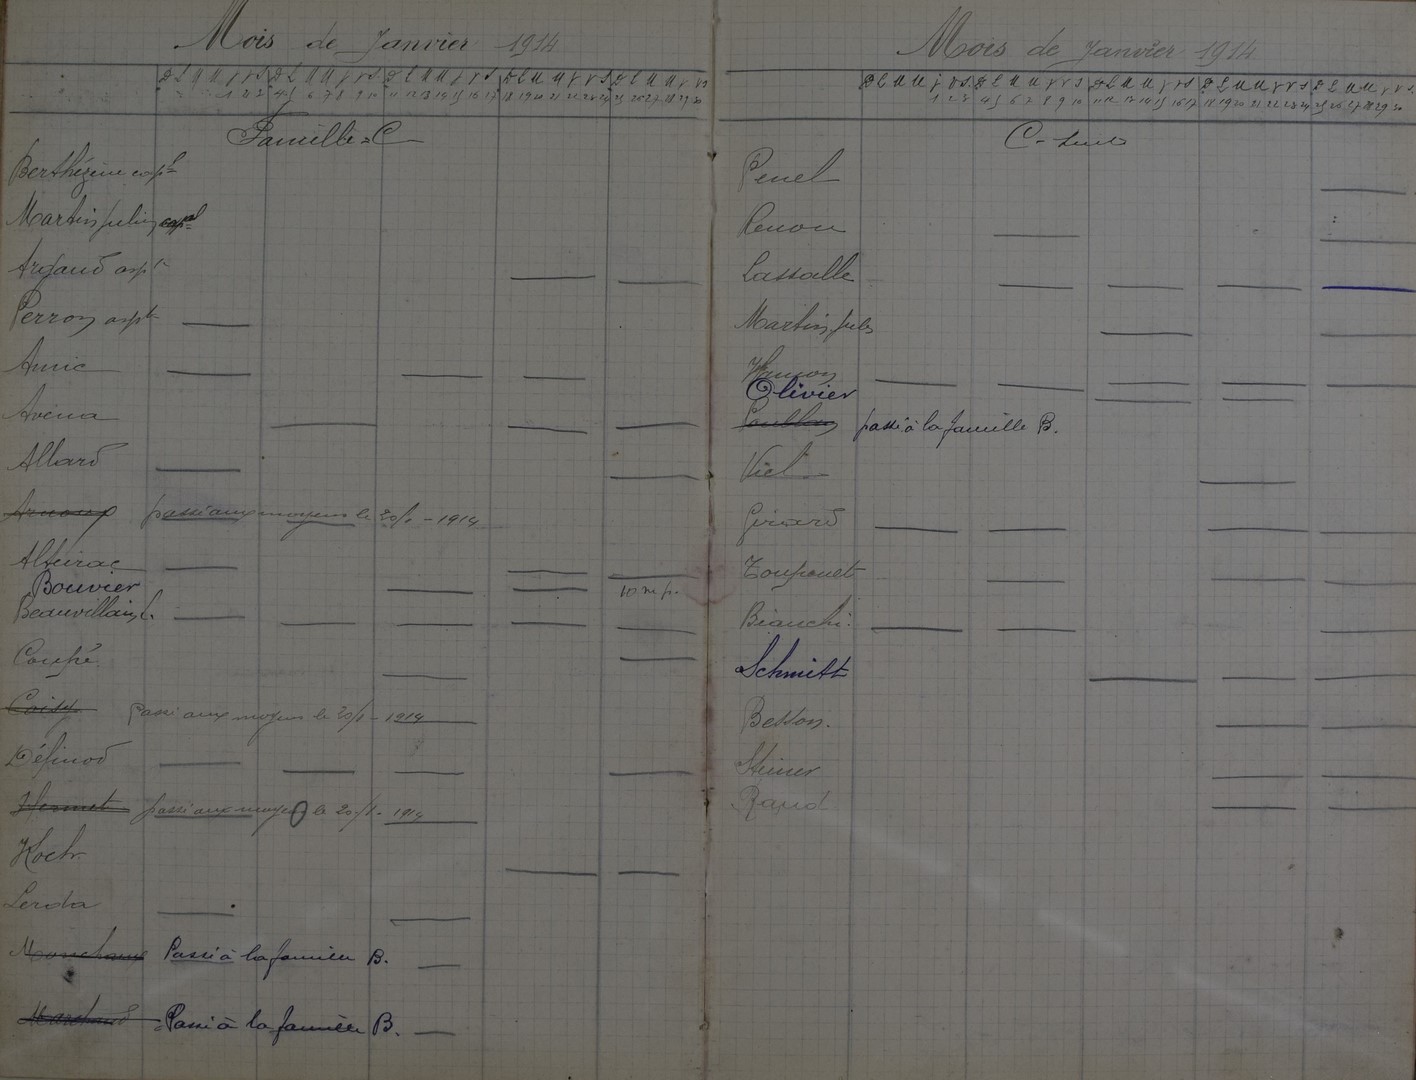 Mois de Janvier 1914
D L M M J V S D L M M J V S D L M M J V S D L M M J V S D L M M J V S
1 2 3 4 5 6 7 8 9 10 11 12 13 14 15 16 17 18 19 20 21 22 23 24 25 26 27 28 29 30
Famille C
Berthézène
Martin Julien
Argaud aspt
Perron aspt
Amic
Avena
Allard
Arnoux passé aux moyens le 20/1 - 1914
Alteirac
Bouvier 10 m p.
Beauvillain
Coupé
Coisy Passé aux moyens le 20/1 - 1914
Définod
Hermet passé aux moyens le 20/1 - 1914
Koch
Lerda
Passé à la famille B.
Marchand Passé à la famille B.
Mois de Janvier 1914
D L M M J V S D L M M J V S D L M M J V S D L M M J V S D L M M J V S
1 2 3 4 5 6 7 8 9 10 11 12 13 14 15 16 17 18 19 20 21 22 23 24 25 26 27 28 29 30
C - suite
Penel
Renou
Lassalle
Martin Jules
Olivier
passé à la famille B.
Viel
Girard
Toupouet
Bianchi
Schmitt
Besson.
Steiner